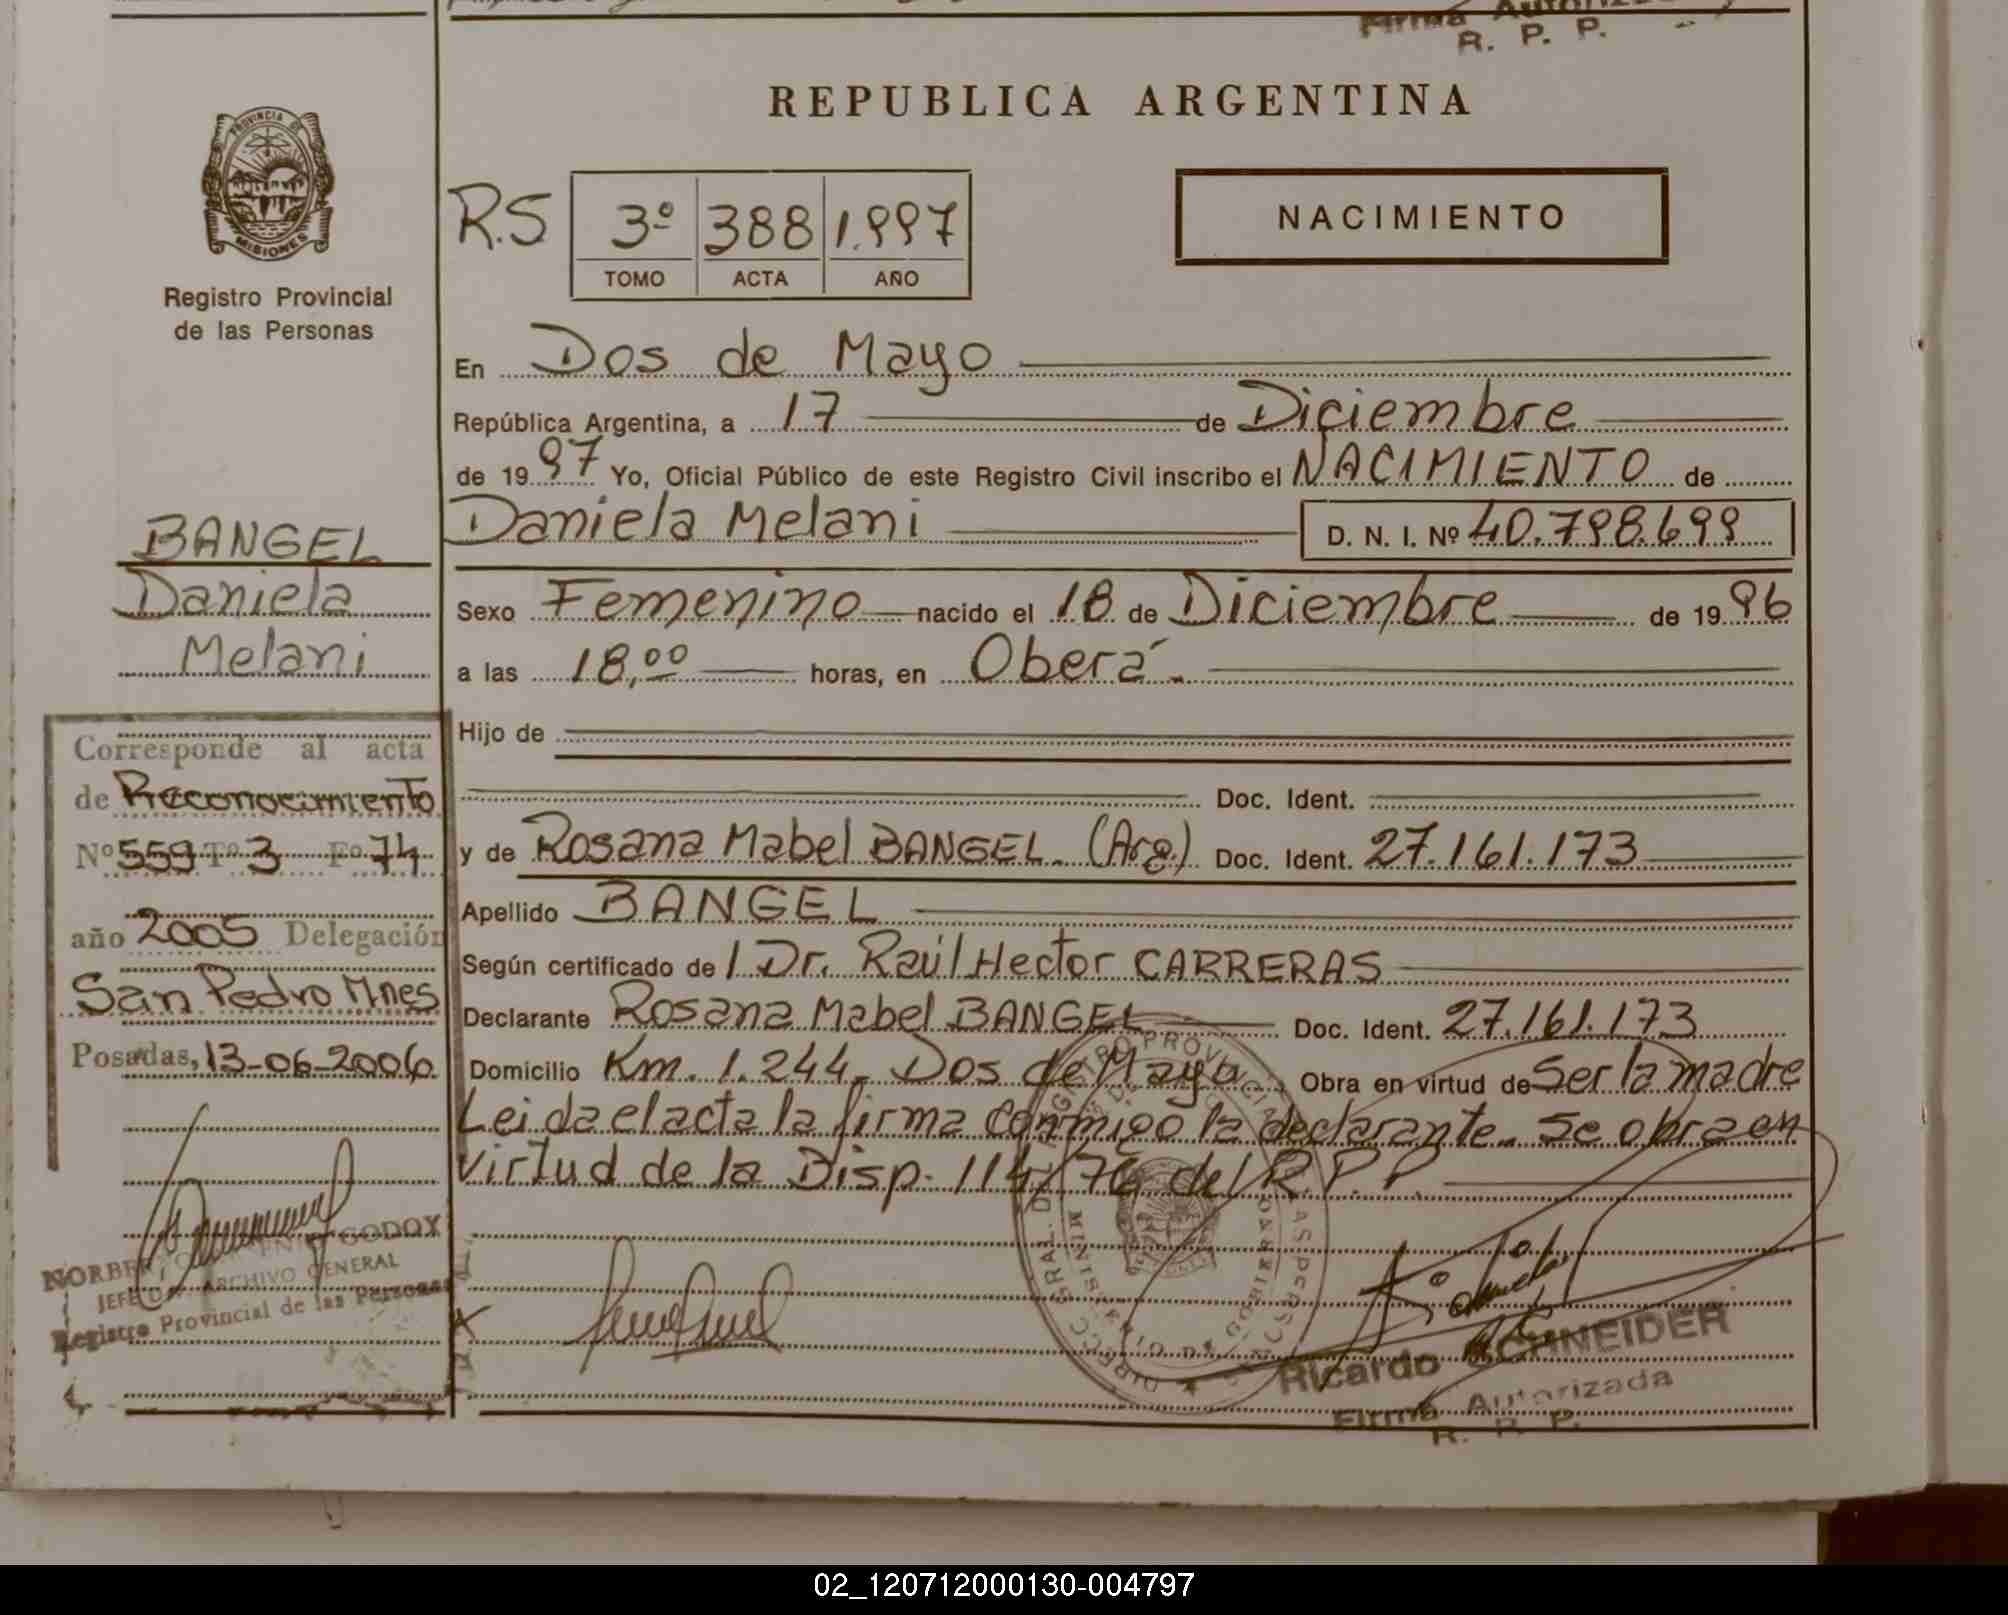 Firma Autorizada
R. P. P.
PROVINCIA DE
MISIONES
Registro Provincial
de las Personas
REPUBLICA ARGENTINA
R.S 3º 388 1.997
TOMO ACTA AÑO
NACIMIENTO
En Dos de Mayo
República Argentina, a 17 de Diciembre
de 1997 Yo, Oficial Público de este Registro Civil inscribo el NACIMIENTO de
Daniela Melani D. N. I. Nº 40.798.699
Sexo Femenino nacido el 18 de Diciembre de 1996
a las 18,00 horas, en Oberá.
Hijo de
Doc. Ident.
y de Rosana Mabel BANGEL. (Arg.) Doc. Ident. 27.161.173
Apellido BANGEL
Según certificado de l Dr. Raúl Hector CARRERAS
Declarante Rosana Mabel BANGEL Doc. Ident. 27.161.173
Domicilio Km. 1.244, Dos de Mayo Obra en virtud de Ser la madre
Leida el acta la firma conmigo la declarante. Se obra en
virtud de la Disp. 114/76 del R.P.P.
Ricardo SCHNEIDER
Firma Autorizada
R. P. P.
BANGEL
Daniela
Melani
Corresponde al acta
de Reconocimiento
Nº 559 Tº 3 Fº 74
año 2005 Delegación
San Pedro Mnes
Posadas, 13-06-2006
GODOY
JEFE ARCHIVO GENERAL
Registro Provincial de las Personas
02_120712000130-004797